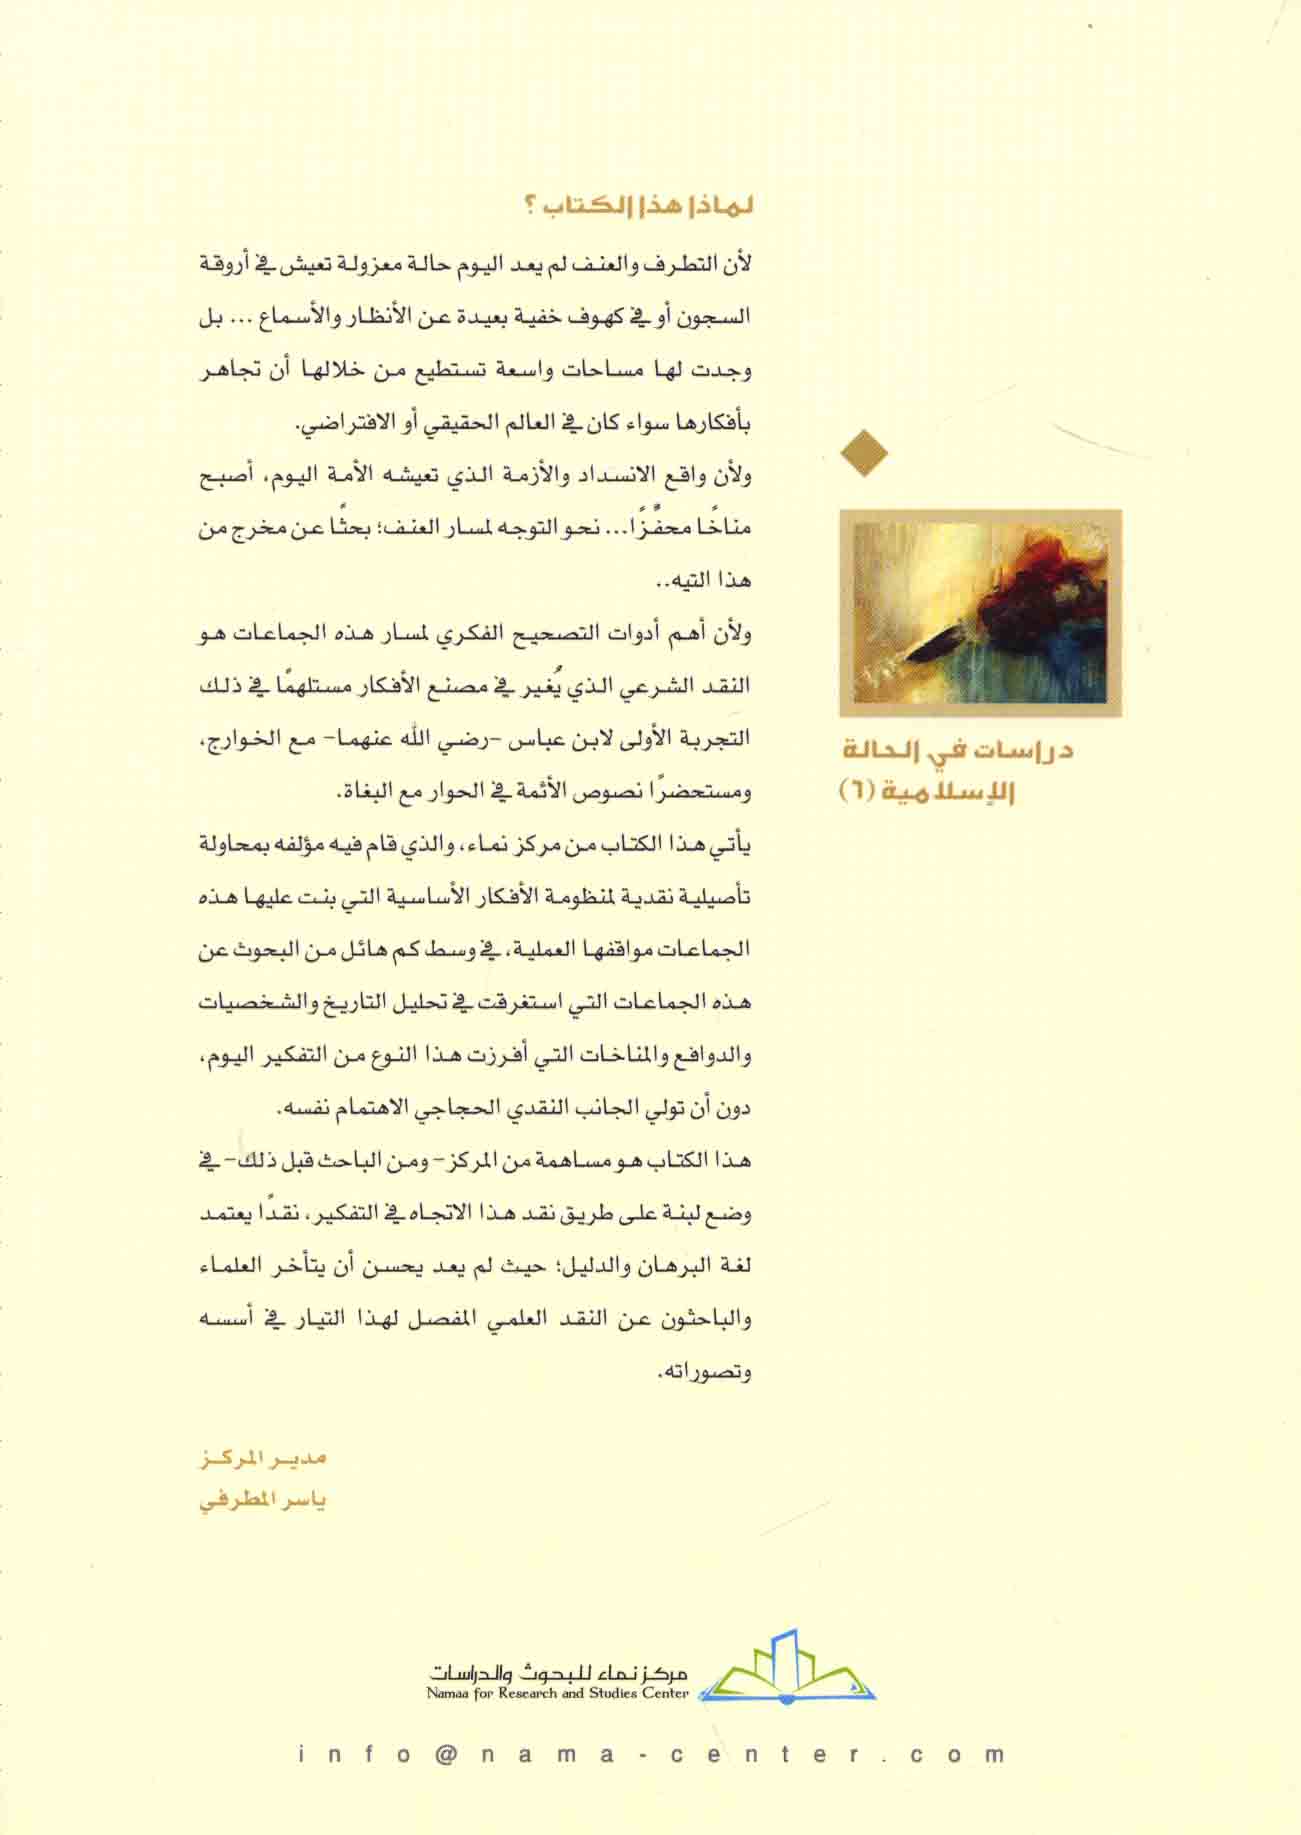 لماذا هذا الكتاب ؟
لأن التطرف والعنف لم يعد اليوم حالة معزولة تعيش في أروقة
السجون أو في كهوف خفية بعيدة عن الأنظار والأسماع ... بل
وجدت لها مساحات واسعة تستطيع من خلالها أن تجاهر
بأفكارها سواء كان في العالم الحقيقي أو الافتراضي.
ولأن واقع الانسداد والأزمة الذي تعيشه الأمة اليوم، أصبح
مناخًا محفِّزًا... نحو التوجه لمسار العنف؛ بحثًا عن مخرج من
هذا التيه..
ولأن أهم أدوات التصحيح الفكري لمسار هذه الجماعات هو
النقد الشرعي الذي يُغير في مصنع الأفكار مستلهمًا في ذلك
التجربة الأولى لابن عباس -رضي الله عنهما- مع الخوارج،
ومستحضرًا نصوص الأئمة في الحوار مع البغاة.
يأتي هذا الكتاب من مركز نماء، والذي قام فيه مؤلفه بمحاولة
تأصيلية نقدية لمنظومة الأفكار الأساسية التي بنت عليها هذه
الجماعات مواقفها العملية، في وسط كم هائل من البحوث عن
هذه الجماعات التي استغرقت في تحليل التاريخ والشخصيات
والدوافع والمناخات التي أفرزت هذا النوع من التفكير اليوم،
دون أن تولي الجانب النقدي الحجاجي الاهتمام نفسه.
هذا الكتاب هو مساهمة من المركز- ومن الباحث قبل ذلك- في
وضع لبنة على طريق نقد هذا الاتجاه في التفكير، نقدًا يعتمد
لغة البرهان والدليل؛ حيث لم يعد يحسن أن يتأخر العلماء
والباحثون عن النقد العلمي المفصل لهذا التيار في أسسه
وتصوراته.
مدير المركز
ياسر المطرفي
دراسات في الحالة
الإسلامية (٦)
مركز نماء للبحوث والدراسات
Namaa for Research and Studies Center
info@nama-center.com